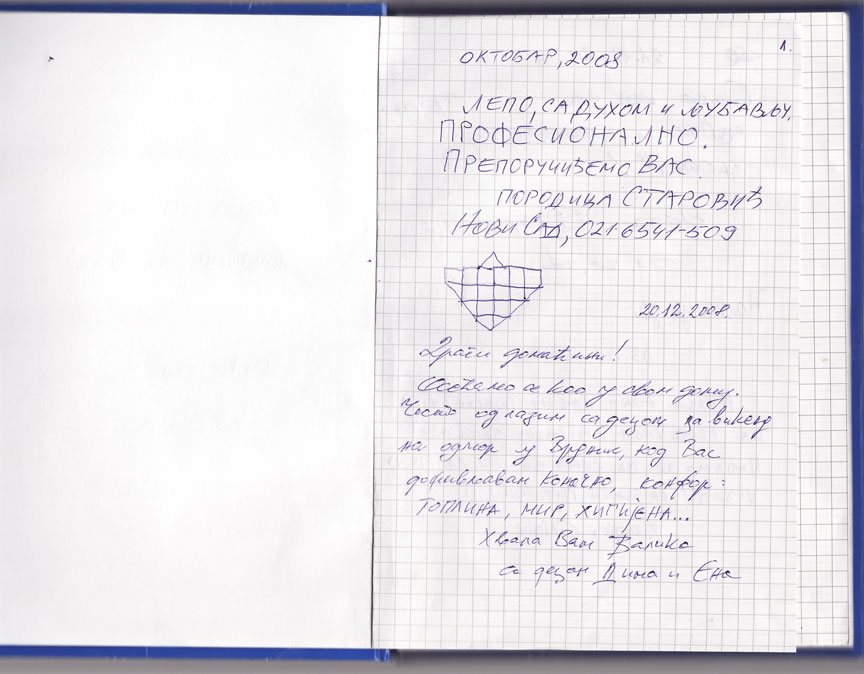 1.
ОКТОБАР, 2008
ЛЕПО, СА ДУХОМ И ЉУБАВЉУ.
ПРОФЕСИОНАЛНО.
ПРЕПОРУЧИЋЕМО ВАС.
ПОРОДИЦА СТАРОВИЋ
НОВИ САД, 021-6541-509
20.12.2008.
Драги домаћини!
Осећамо се као у свом дому.
Често одлазим са децом за викенд
на одмор у Врдник, код Вас
доживљавам коначно, комфор:
ТОПЛИНА, МИР, ХИГИЈЕНА...
Хвала Вам
са децом Дина и Ена